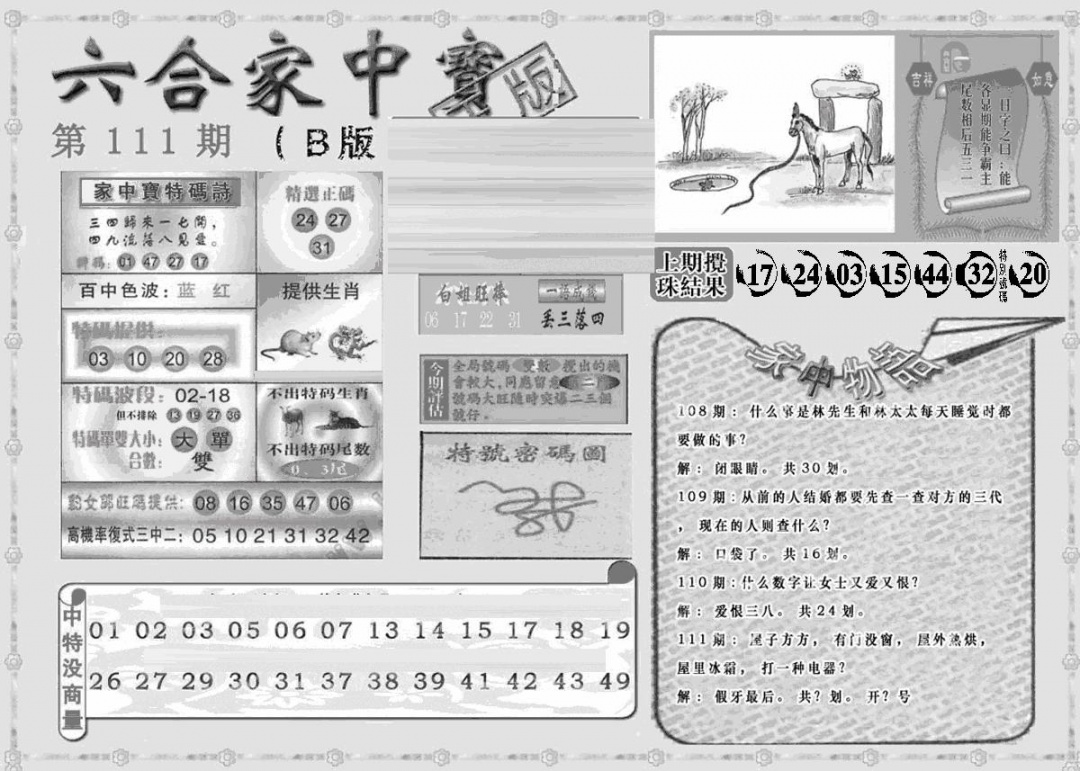 六合家中寶
版
第 111 期 (B版
家中寶特碼詩
三四歸來一七開，
四九流落八見愛。
01 47 27 17
精選正碼
24 27
31
百中色波：蓝 红
提供生肖
特码提供：
03 10 20 28
特碼波段：02-18
但不排除 13 19 27 36
特碼單雙大小：大 單
合數：雙
不出特码生肖
不出特码尾数
0、3尾
08 16 35 47 06
高機率復式三中二：05 10 21 31 32 42
白姐旺棒
06 17 22 31
一語成讖
丢三落四
今期評估
全局號碼 雙數 攪出的機
會較大，同應留意 第二階
號碼大旺隨時突爆二三個
號仔。
特號密碼圖
吉祥
如意
一日字之曰：能
各显期能争霸主
尾数相后五三一
上期攪
珠結果
17 24 03 15 44 32 特別號碼 20
家中物語
108期：什么事是林先生和林太太每天睡觉时都
要做的事？
解：闭眼睛。共30划。
109期：从前的人结婚都要先查一查对方的三代
，现在的人则查什么？
解：口袋了。共16划。
110期：什么数字让女士又爱又恨？
解：爱恨三八。共24划。
111期：屋子方方，有门没窗，屋外热烘，
屋里冰霜，打一种电器？
解：假牙最后。共？划。开？号
中特没商量
01 02 03 05 06 07 13 14 15 17 18 19
26 27 29 30 31 37 38 39 41 42 43 49